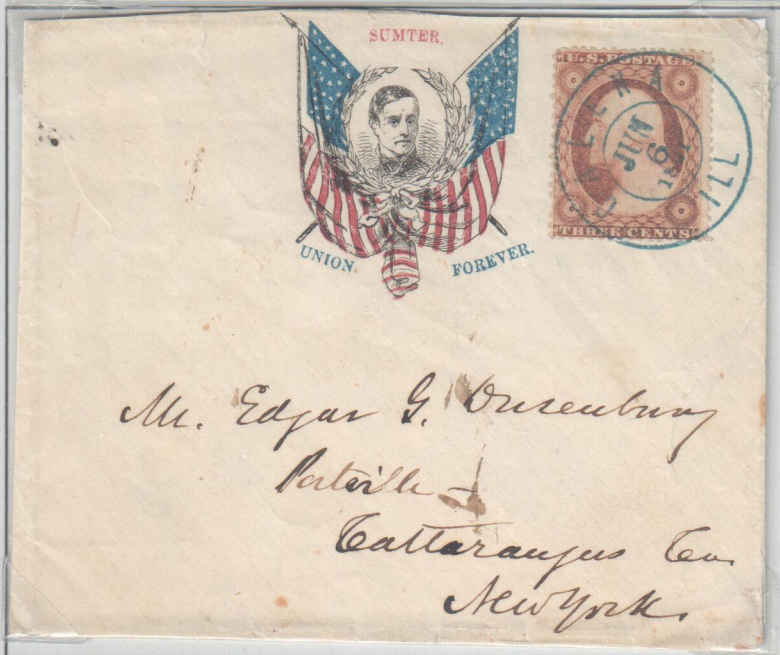 SUMTER.
UNION FOREVER.
U.S. POSTAGE
THREE CENTS
GALENA ILL
JUN
6
1861
Mr. Edgar G. Dusenbury
Portville
Cattaraugus Co.
New York.